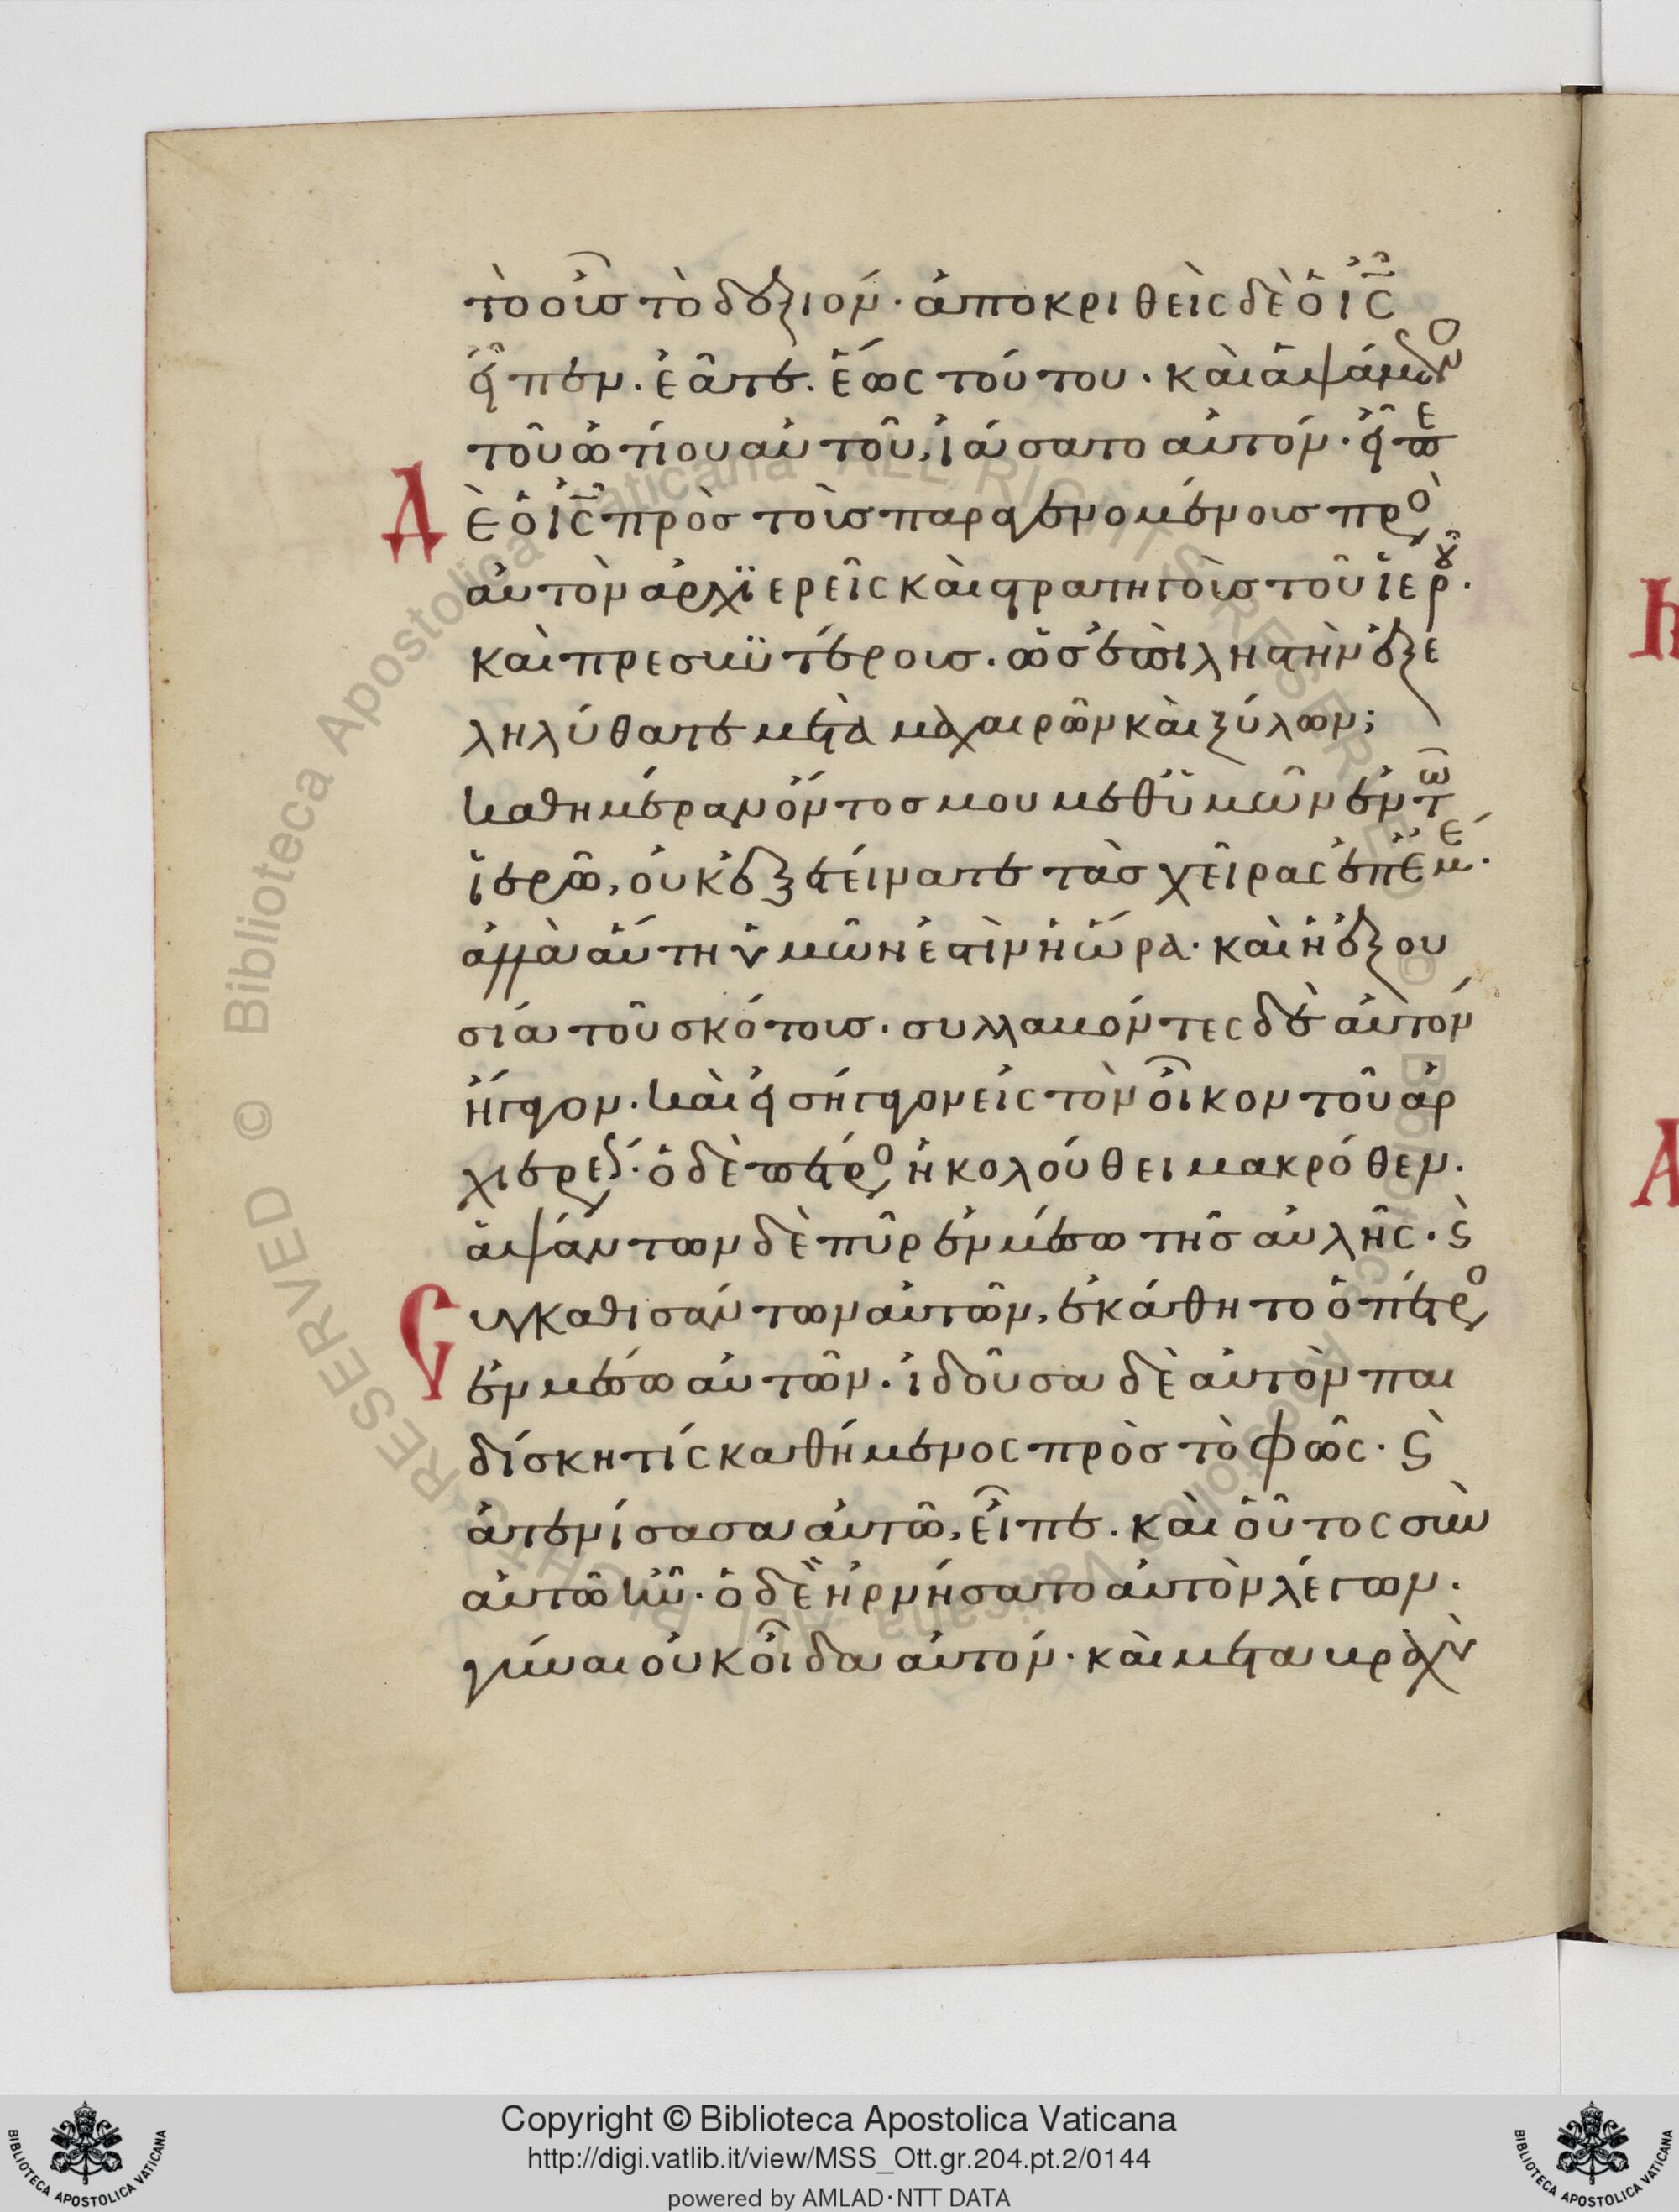 τὸ οὖς τὸ δεξιόν· ἀποκριθεὶς δὲ ὁ ις
εἶπεν. ἐᾶτε. ἕως τούτου· καὶ ἁψάμενο
τοῦ ὠτίου αὐτοῦ, ἰάσατο αὐτόν· εἶπε
Δὲ ὁ ις πρὸς τοὺς παραγενομένους πρὸ
αὐτὸν ἀρχϊερεῖς καὶ στρατηγοὺς τοῦ ἱεροῦ·
καὶ πρεσβϋτέρους. ὡς ἐπὶ ληστὴν ἐξε
ληλύθατε μετὰ μαχαιρῶν καὶ ξύλων;
καθημέραν ὄντος μου μεθϋμῶν ἐν τῶ
ἱερῶ, οὐκ ἐξετείνατε τὰς χεῖρας ἐπ ἐμέ·
ἀλλὰ αὕτη ὑμῶν ἐστὶν ἡ ὥρα· καὶ ἡ ἐξου
σία τοῦ σκότους· συλλαβόντες δὲ αὐτὸν
ἤγαγον· καὶ εἰσήγαγον εἰς τὸν οἶκον τοῦ ἀρ
χιερέως· ὁ δὲ πέτρο ἠκολούθει μακρόθεν.
ἁψάντων δὲ πῦρ ἐν μέσω τῆς αὐλῆς· ϛ
Συγκαθισάντων αὐτῶν, ἐκάθητο ὁ πέτρο
ἐν μέσω αὐτῶν. ἰδοῦσα δὲ αὐτὸν παι
δίσκη τίς καθήμενος πρὸς τὸ φῶς· ϛ
ἀτενίσασα αὐτῶ, εἶπε. καὶ οὗτος σὺν
αὐτῶ ἦν· ὁ δὲ ἠρνήσατο αὐτὸν λέγων.
γύναι οὐκ οἶδα αὐτόν· καὶ μετα βραχὺ
Copyright © Biblioteca Apostolica Vaticana
http://digi.vatlib.it/view/MSS_Ott.gr.204.pt.2/0144
powered by AMLAD·NTT DATA